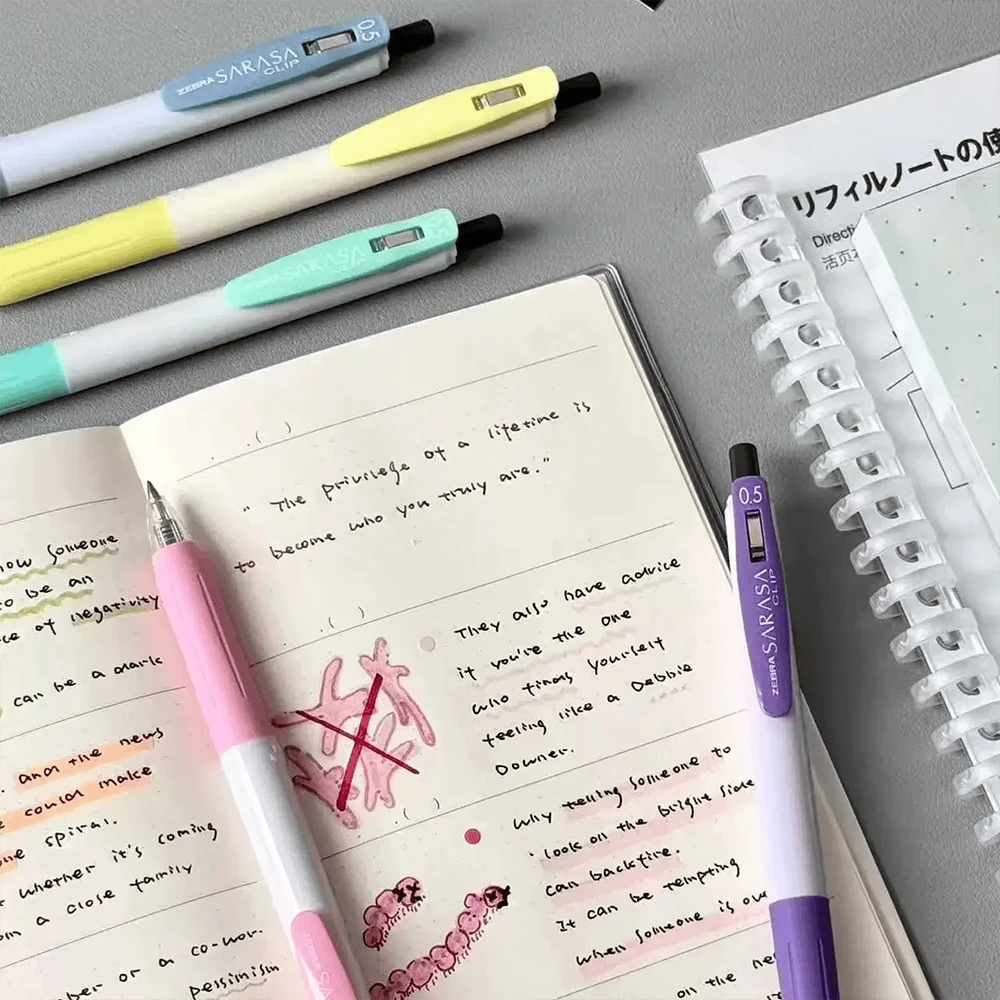 0.5
ZEBRA SARASA CLIP
0.5
ZEBRA SARASA CLIP
リフィルノートの使
Directi
活页
.( )
" The privilege of a lifetime is
to become who you truly are."
.( )
They also have advice
if you're the one
who finds yourself
feeling like a Debbie
Downer.
( )
Why telling someone to
look on the bright side
can backfire.
It can be tempting
when someone is ou
on the ne
now someone
to be an
ce of negativity
can be a mark
and the news
e could make
one spiral.
whether it's coming
om a close family
ber or a co-wor.
pessimism
0.5
ZEBRA SARASA CLIP
SA